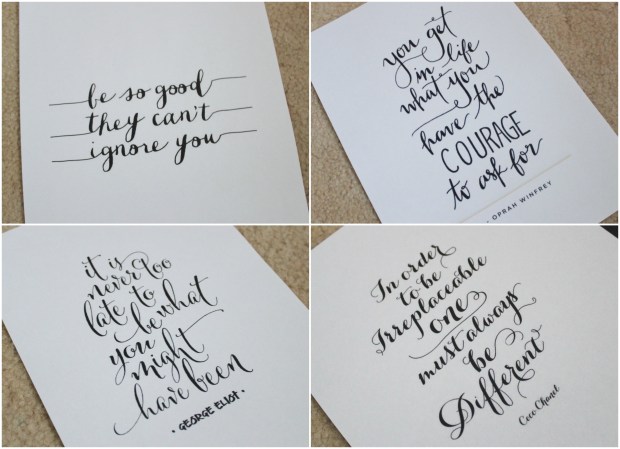 be so good
they can't
ignore you
you get
in life
what you
have the
COURAGE
to ask for
OPRAH WINFREY
it is
never too
late to
be what
you
might
have been
· GEORGE ELIOT ·
In order
to be
Irreplaceable
one
must always
be
Different
Coco Chanel